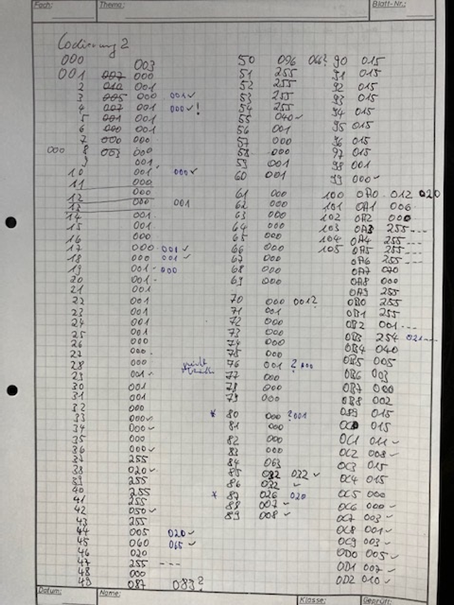 Fach:
Thema:
Blatt-Nr.:
Codierung 2
000 003
001 000
2 000
3 000 001 ✓
4 001 000 ✓!
5 001
6 001
7 000
8
9 001
10 001 000 ✓
11 000
12
13 001
14 001
15 001
16 000
17 000 001 ✓
18 000 001 ✓
19 001 000
20 001
21 001
22 001
23 001
24 001
25 001
26 000
27 000
28 000
29 001
30 001
31 001
32 000
33 000 ✓
34 000 ✓
35 000
36 000 ✓
37 255
38 020 ✓
39 255
40 255
41 255
42 050 ✓
43 255
44 005 020 ✓
45 060 065 ✓
46 020
47 255 ---
48 000
49 087 083?
50 096
51 255
52 255
53 255
54 255
55 040 ✓
56 001
57 000
58 000
59 001
60 001
61 000
62 000
63 000
64 000
65 000
66 000
67 000
68 000
69 000
70 000 001?
71 001
72 000
73 000
74 000
75 000
76 001 ? 000
77 000
78 000
79 000
* 80 000 ? 001
81 000
82 000
83 000
84 063
85 032 ✓
86 032 ✓
* 87 026 020
88 007 ✓
89 008 ✓
90 015
91 015
92 015
93 015
94 015
95 015
96 015
97 015
98 001
99 000 ✓
100 0A0 012 020
101 0A1 006
102 0A2 000
103 0A3 255 ---
104 0A4 255 ---
105 0A5 255 ---
0A6 255
0A7
0A8 000
0A9 255
0B0 255
0B1 255
0B2 001
0B3 254 021
0B4 040
0B5 005
0B6 003
0B7 000
0B8 002
0B9 015
0C0 015
0C1 011 ✓
0C2 008 ✓
0C3 015
0C4 015
0C5 000
0C6 000 ✓
0C7 003 ✓
0C8 001 ✓
0C9 003 ✓
0D0 005 ✓
0D1 007 ✓
0D2 010 ✓
Datum:
Name:
Klasse:
Geprüft: